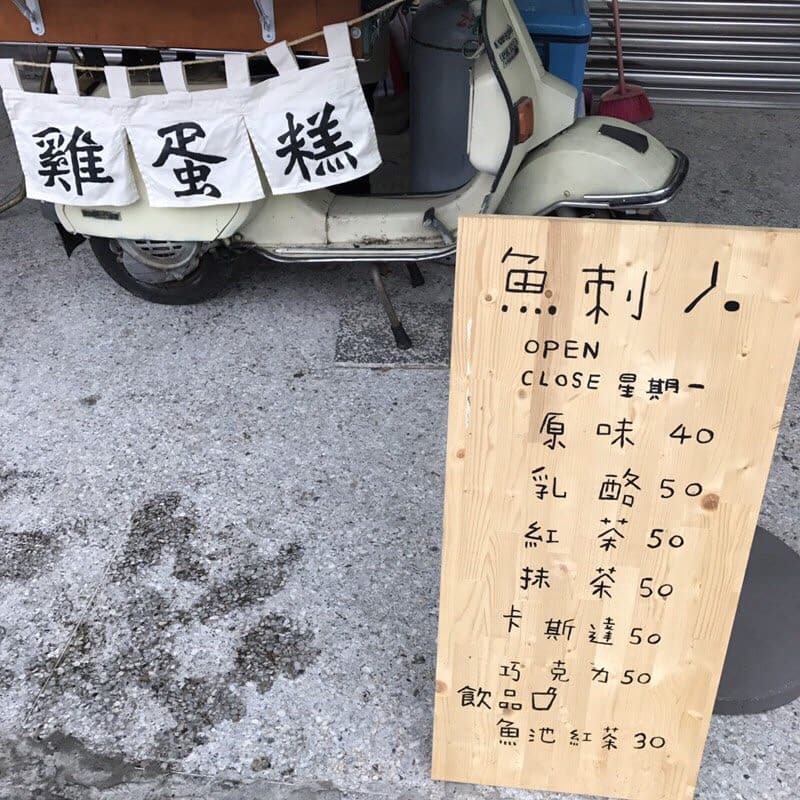 雞蛋糕
魚刺人
OPEN
CLOSE 星期一
原味 40
乳酪 50
紅茶 50
抹茶 50
卡斯達 50
巧克力 50
飲品
魚池紅茶 30